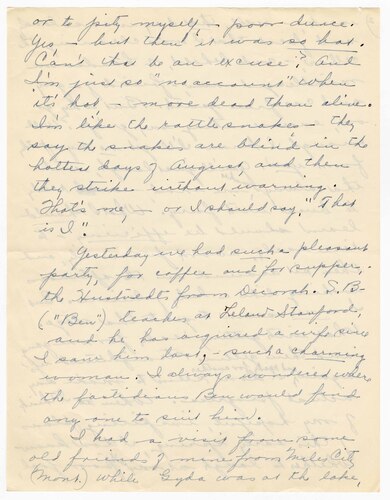 or to pity myself – poor dunce.
Yes – but then it was so hot.
Can't this be an excuse? And
I'm just so "no account" when
it's hot – more dead than alive.
I'm like the rattle snakes – they
say the snakes are blind in the
hottest days of August, and then
they strike without warning.
That's me, – or I should say, "That
is I".
Yesterday we had such a pleasant
party, for coffee and for supper,
the Hustvedts from Decorah. S.B–
("Ben") teaches at Leland Stanford,
and he has acquired a wife since
I saw him last, – such a charming
woman. I always wondered where
the fastidious Ben would find
any one to suit him.
I had a visit from some
old friend of mine from Miles City
(Mont.) while Gyda was at the lake,